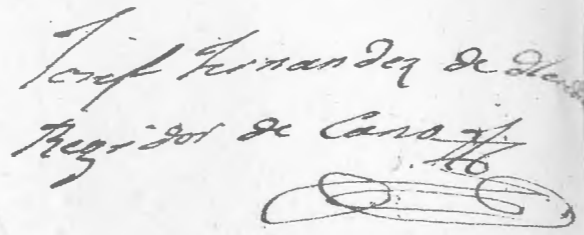 Josef Fernandez de
Regidor de Cano